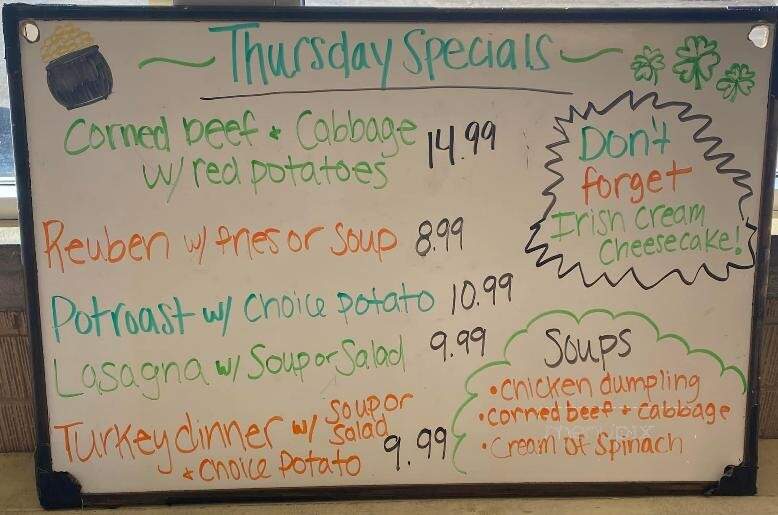 Thursday Specials
Corned beef + Cabbage 14.99
w/ red potatoes
Reuben w/ fries or soup 8.99
Potroast w/ choice potato 10.99
Lasagna w/ Soup or Salad 9.99
Turkey dinner w/ soup or salad
+ choice potato 9.99
Don't
forget
Irish Cream
Cheesecake!
Soups
• chicken dumpling
• corned beef + cabbage
• Cream of Spinach